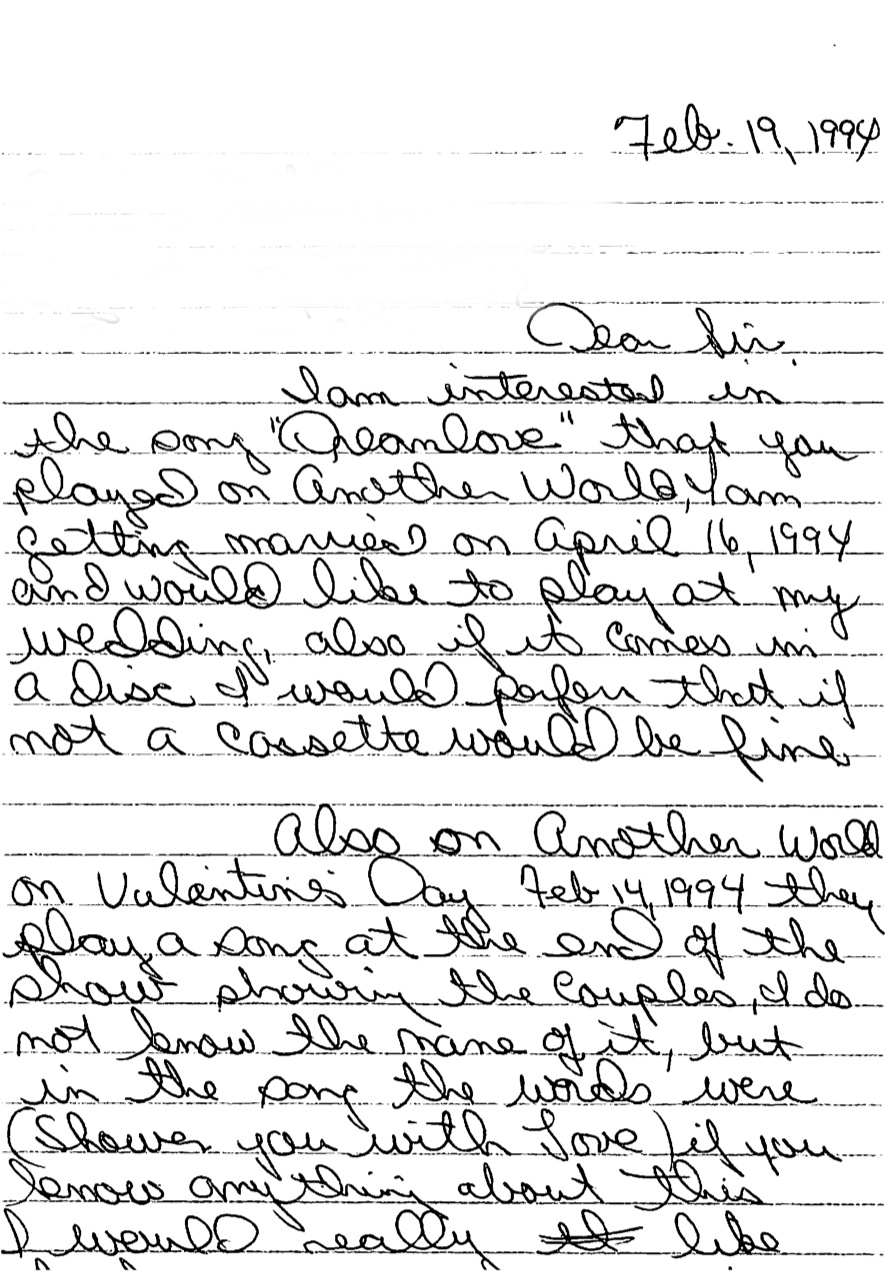 Feb. 19, 1994
Dear Sir,
I am interested in
the song "Dreamlove" that you
played on Another World, I am
getting married on April 16, 1994
and would like to play at my
wedding, also if it comes in
a disc I would perfer that if
not a cassette would be fine.
Also on Another World
on Valentine's Day Feb 14, 1994 they
play a song at the end of the
show showing the couples, I do
not know the name of it, but
in the song the words were
(Shower you with Love) if you
know anything about this
I would really like